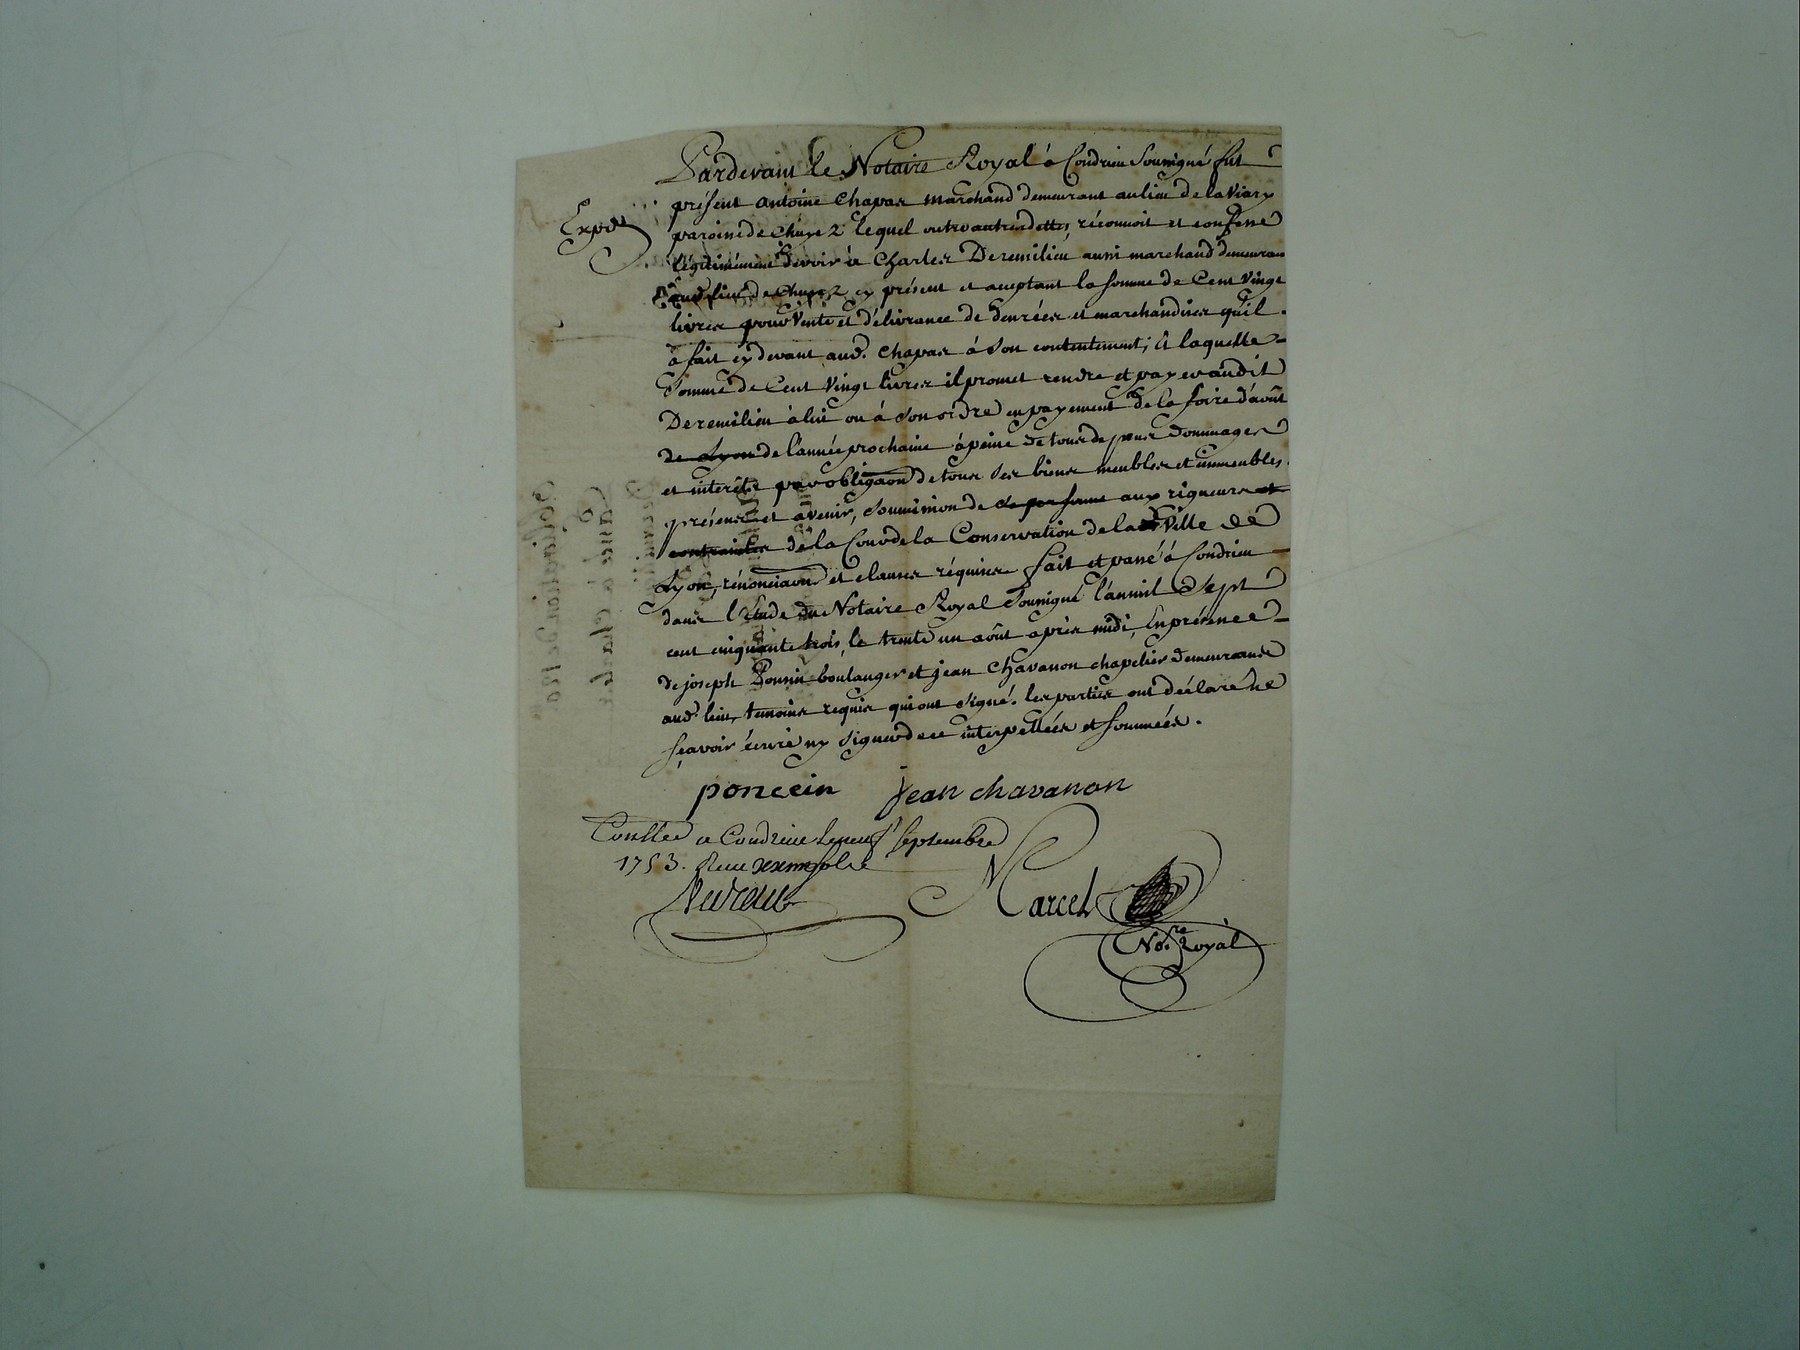 Pardevant le Notaire Royal à Condrieu Soussigné fut
présent antoine Chapas marchand demeurant au lieu de la Viary
Expée
paroisse de Chuyez lequel outre autres dettes, réconnoit et confesse
légitimément devoir à Charles Deremilieu aussi marchand demeurant
aud. lieu de Chuyez cy présent et acceptant la somme de Cent Vingt
livres pour Vente et délivrance de denrées et marchandises qu'il
a fait cy devant aud. Chapas à son contentement; à laquelle
Somme de Cent Vingt livres il promet rendre et payer audit
Deremilieu à lui ou à son ordre en payement de la foire d'août
de Lyon de l'année prochaine à peine de tous dépens dommages
et interêts par obligaon de tous ses biens meubles et immeubles
présens et avenir, Soumission de sa personne aux rigueurs et
contraintes de la Cour de la Conservation de la Ville de
Lyon, rénonciaons et clauses réquises fait et passé à Condrieu
dans l'Etude du Notaire Royal Soussigné l'an mil Sept
cent cinquante trois, le trente un août après midi, En présence
de joseph Poncin boulanger et jean Chavanon chapelier demeurants
aud. lieu, temoins requis qui ont signé. les parties ont déclaré ne
sçavoir écrire ny signer de ce interpellées et sommées.
poncein jean chavanon
Conllée a Condrieu le neuf septembre
1753. Reçu
Marcel
No.re Royal